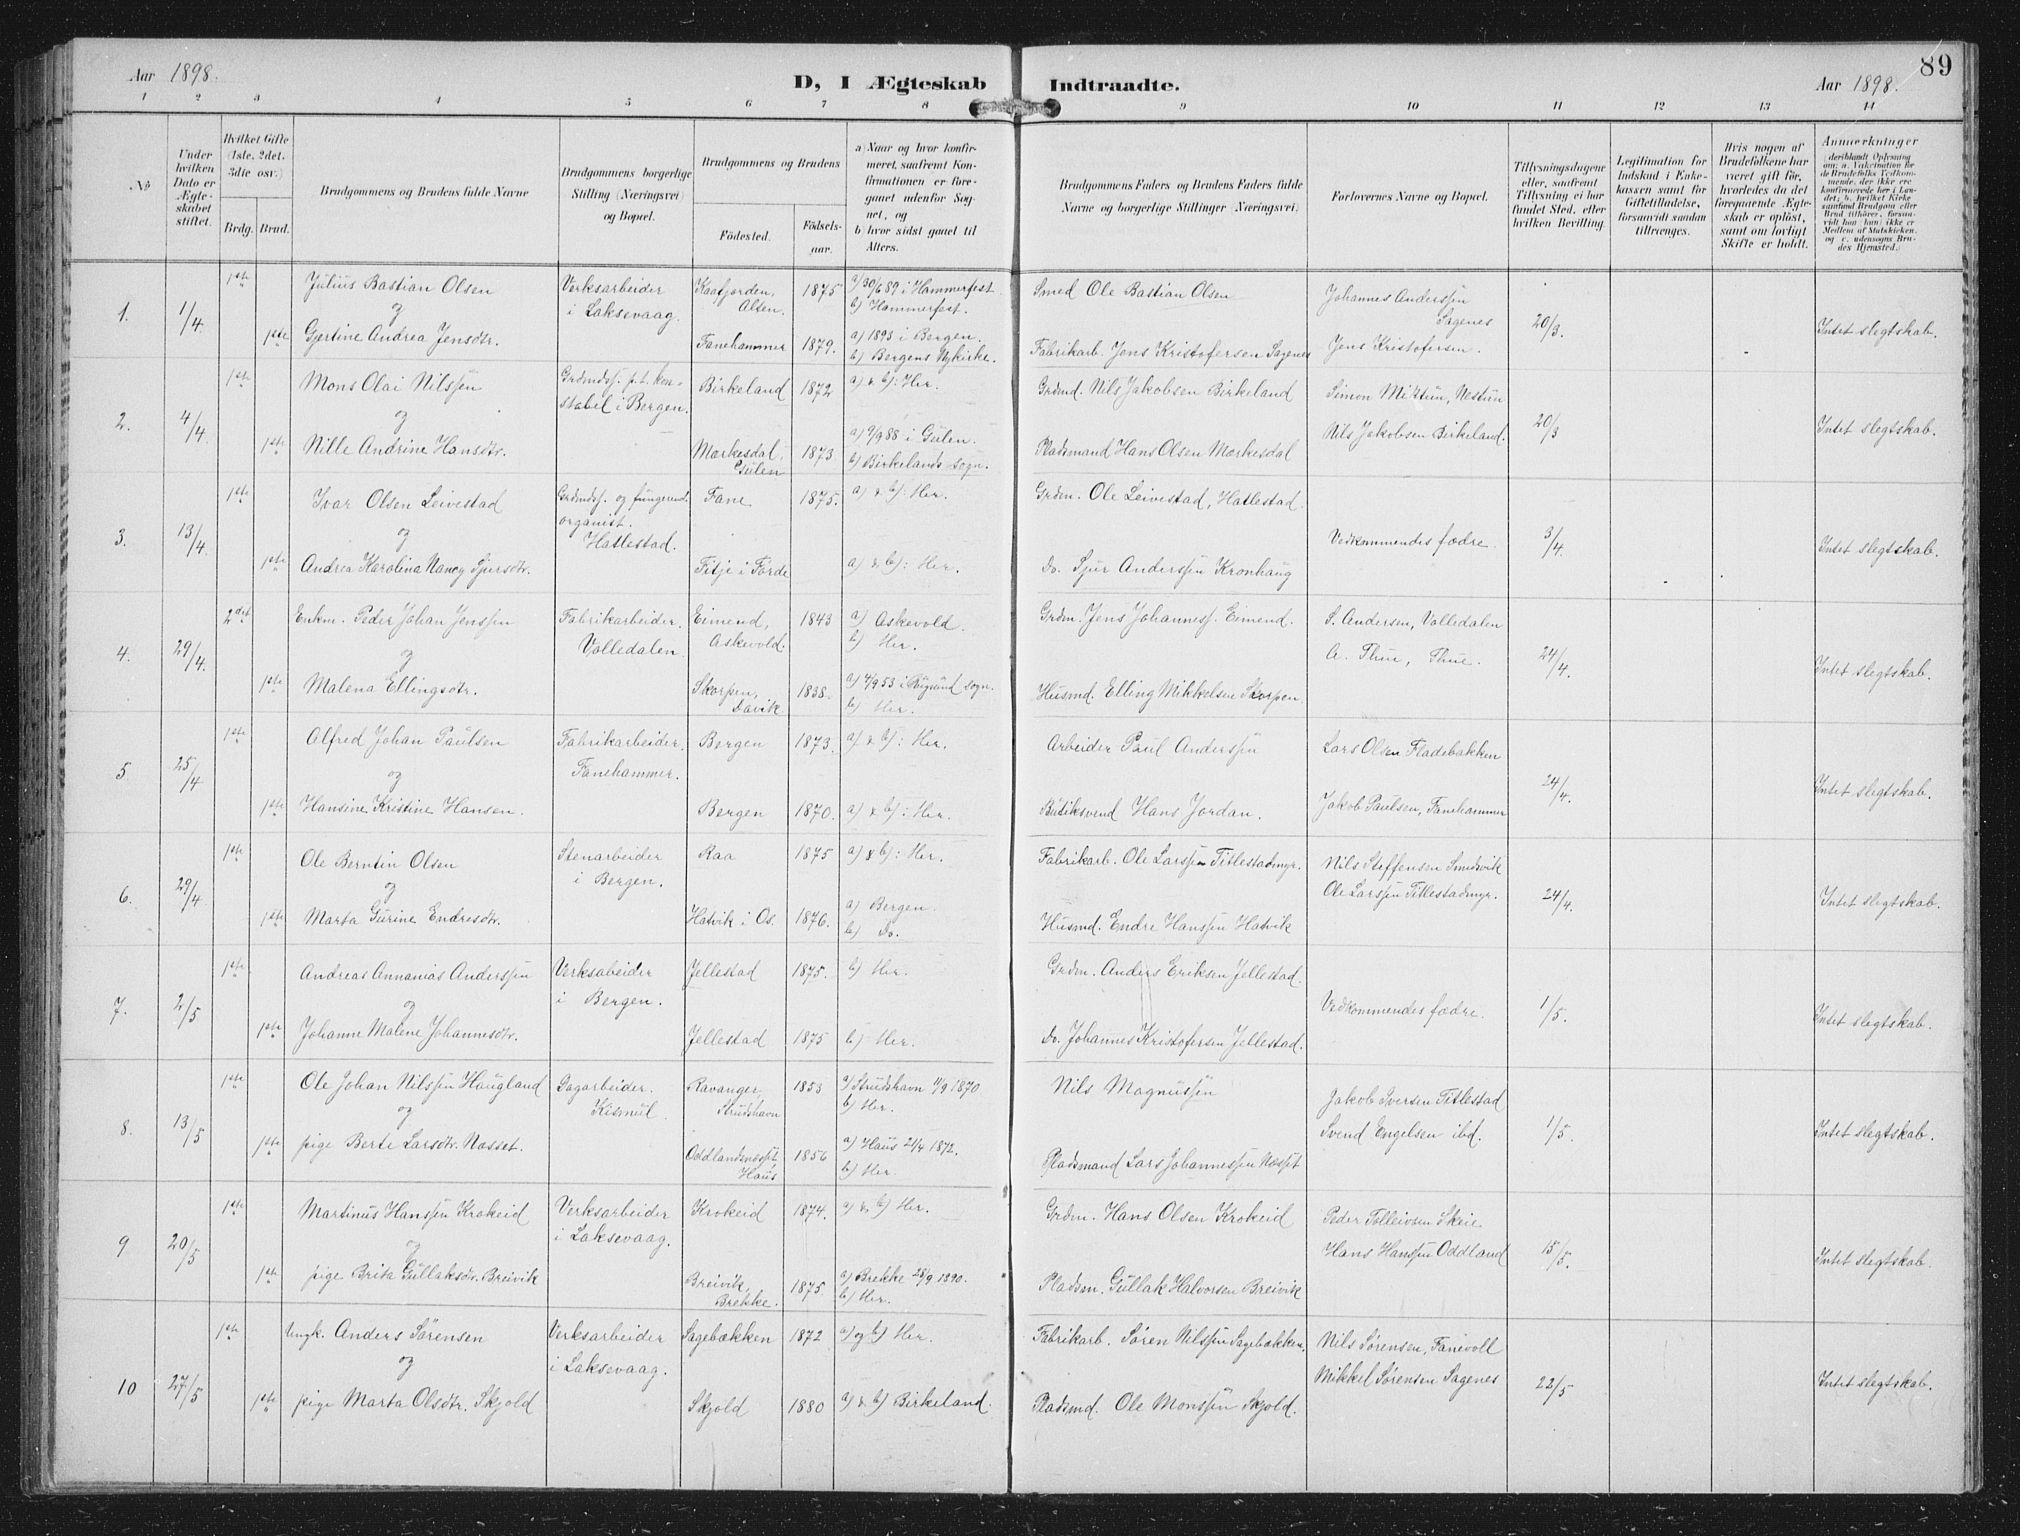 Aar 1898.
D, I Ægteskab Indtraadte.
Aar 1898.
89
1 2 3 4 5 6 7 8 9 10 11 12 13 14
№
Under hvilken Dato er Ægteskabet stiftet.
Hvilket Gifte (1ste, 2det, 3die osv.)
Brdg. Brud.
Brudgommens og Brudens fulde Navne
Brudgommens borgerlige Stilling (Næringsvei) og Bopæl.
Brudgommens og Brudens
Fødested.
Fødselsaar.
a) Naar og hvor konfirmeret, saafremt Konfirmationen er foregaaet udenfor Sognet, og
b) hvor sidst gaaet til Alters.
Brudgommens Faders og Brudens Faders fulde Navne og borgerlige Stillinger (Næringsvei)
Forlovernes Navne og Bopæl.
Tillysningsdagene eller, saafremt Tillysning ei har fundet Sted, efter hvilken Bevilling.
Legitimation for Indskud i Enkekassen samt for Giftetilladelse, forsaavidt saadan tiltrænges.
Hvis nogen af Brudefolkene har været gift før, hvorledes da det foregaaende Ægteskab er opløst, samt om lovligt Skifte er holdt.
Anmerkninger
1. 1/4
1ste Julius Bastian Olsen Verksarbeider i Laksevaag. Kaafjorden, Alten. 1875 a) 30/6 89 i Hammerfest b) Hammerfest. Smed Ole Bastian Olsen Johannes Anderssen Sagenes 20/3. Intet slegtskab.
og
1ste Gjertine Andrea Jensdtr. Fanehammer 1879. a) 1893 i Bergen. b) Bergens Nykirke. Fabrikarb. Jens Kristofersen Sagenes Jens Kristofersen.
2. 4/4
1ste Mons Olai Nilssen Grdmdss. p.t. konstabel i Bergen. Birkeland 1872 a) & b): Her. Grdmd. Nils Jakobsen Birkeland Simon Midttun, Nestun 20/3 Intet slegtskab.
og
1ste Nille Andrine Hansdtr. Mærkesdal, Gulen 1873 a) 9/9 88 i Gulen. b) Birkelands sogn. Pladsmand Hans Olsen Mærkesdal Nils Jakobsen Birkeland.
3. 13/4
1ste Ivar Olsen Leivestad Grdmdss. og fungerend. organist. Hatlestad. Fane 1875. a) & b): Her. Grdm. Ole Leivestad, Hatlestad. Vedkommendes fædre. 3/4 Intet slegtskab.
og
1ste Andrea Karolina Nancy Sjursdtr. Titje i Førde a) & b): Her. Do. Sjur Anderssen Kronhaug
4. 29/4.
2det Enkm. Peder Johan Jenssen Fabrikarbeider. Valledalen. Eimend, Askevold. 1843 a) Askevold. b) Her. Grdm. Jens Johanness. Eimend. S. Andersen, Valledalen 24/4. Intet slegtskab.
og
A. Thue, Thue.
1ste Malena Ellingsdtr. Skorpen, Davik 1838. b) Her. Husmd. Elling Mikkelsen Skorpen
5. 25/4
1ste Alfred Johan Paulsen Fabrikarbeider. Fanehammer. Bergen 1873. a) & b): Her. Arbeider Paul Anderssen Lars Olsen Fladebakken 24/4. Intet slegtskab.
og
1ste Hansine Kristine Hansen. Bergen 1870. a) & b): Her. Butiksvend Hans Jordan. Jakob Paulsen, Fanehammer
6. 29/4
1ste Ole Berntin Olsen Stenarbeider i Bergen. Raa 1875 a) & b): Her. Fabrikarb. Ole Larssen Titlestadmyr. Nils Steffensen Smedsvik 24/4. Intet slegtskab.
og
Ole Larssen Titlestadmyr.
1ste Marta Gurine Endresdtr. Hatvik i Os. 1876. a) Bergen. b) Do. Husmd. Endre Hanssen Hatvik
7. 2/5
1ste Andreas Annanias Anderssen Verksabeider i Bergen. Jellestad 1875. b) Her. Grdm. Anders Eriksen Jellestad. Vedkommendes fædre. 1/5. Intet slegtskab.
og
1ste Johanne Malene Johannesdtr. Jellestad 1875 b) Her. Do. Johannes Kristofersen Jellestad.
8. 13/5
1ste Ole Johan Nilssen Haugland Dagarbeider. Kismul. Ravanger Strudshavn 1853 a) Strudshavn 4/9 1870 b) Her. Nils Magnussen Jakob Iversen Titlestad 1/5. Intet slegtskab.
og
Svend Engelsen ibd.
1ste pige Berte Larsdtr. Næsset. Oddlandsnæsset Haus 1856 a) Haus 21/4 1872. b) Her. Pladsmand Lars Johannessen Næsset
9 20/5
1ste Martinus Hanssen Krokeid Verksarbeider i Laksevaag. Krokeid 1874. a) & b) Her. Grdm. Hans Olsen Krokeid Peder Tolleivsen Skeie 15/5. Intet slegtskab.
og
Hans Hanssen Oddland
1ste pige Brita Gullaksdtr. Breivik Breivik, Brekke. 1875. a) Brekke 28/9 1890. b) Her. Pladsm. Gullak Halvorsen Breivik
10 27/5
1ste Ungk. Anders Sørensen Verksarbeider i Laksevaag. Sagebækken 1872 a) og b) Her. Fabrikarb. Søren Nilssen Sagebækken. Nils Sørensen, Fanevoll 22/5 Intet slegtskab.
og
Mikkel Sørensen Sagenes
1ste pige Marta Olsdtr. Skjold Skjold 1880 a) & b) Birkeland. Pladsmd. Ole Monssen Skjold.